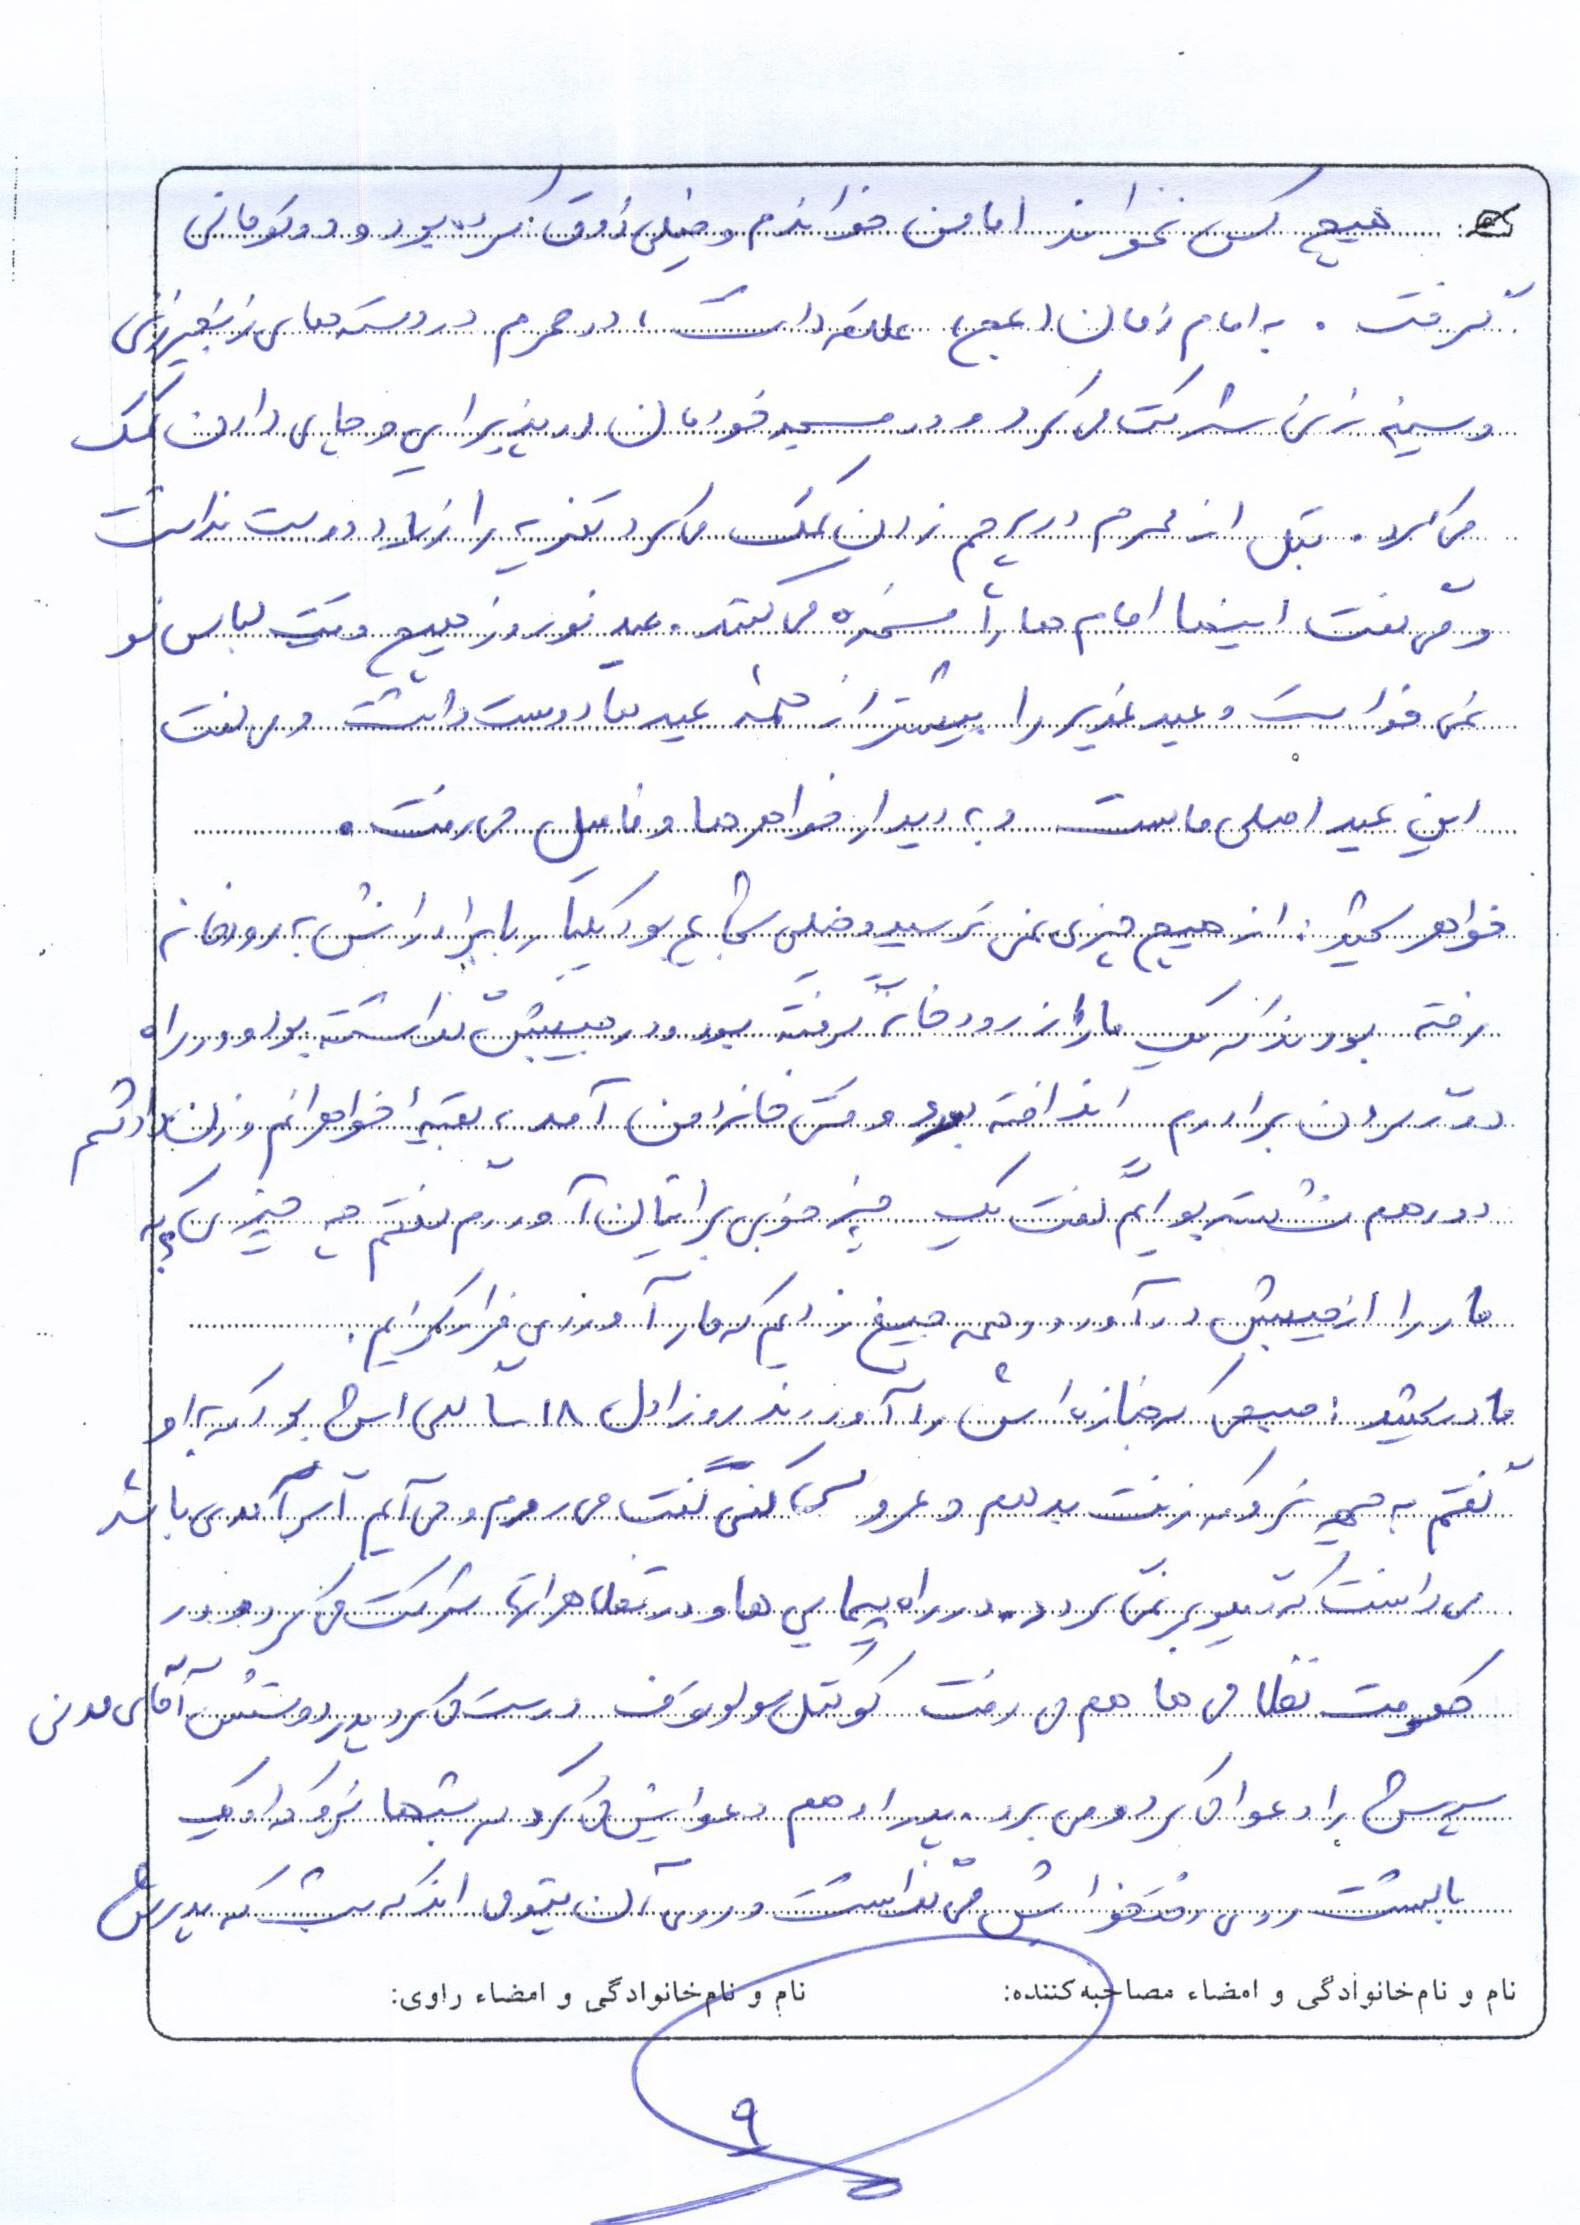 هیچ کس نخواند اما من خواندم و خیلی ذوق کرده بود و دو تومانی
گرفت . به امام زمان (عج) علاقه داشت ، در محرم در دسته های زنجیرزنی
و سینه زنی شرکت می کرد و در مسجد خودمان در پذیرایی و چای دادن کمک
می کرد . قبل از محرم در پرچم زدن کمک می کرد تعزیه را زیاد دوست نداشت
و می گفت اینها امام ها را مسخره می کنند . عید نوروز هیچ وقت لباس نو
نمی خواست و عید غدیر را بیشتر از همه عید ها دوست داشت و می گفت
این عید اصلی ماست و به دیدار خواهرها و فامیل می رفت .
خواهر شهید : از هیچ چیزی نمی ترسید و خیلی شجاع بود یکبار با برادرانش به رودخانه
رفته بودند که یک مار از رودخانه گرفته بود و در جیبش گذاشته بود و در راه
دور گردن برادرم انداخته بود وقتی خانه من آمد ، بقیه خواهرانم و زن داداشم
دور هم نشسته بودیم گفت یک چیز خوبی برایتان آوردم گفتم چه چیزی که
مار را از جیبش درآورد و همه جیغ زدیم که مار آوردی فرار کردیم .
مادر شهید : صبحی که جنازه اش را آوردند روز اول ۱۸ سالگی اش بود که به او
گفتم به جبهه نرو که زنت بدهم و عروسی کنی گفت می روم و می آیم اگر آمدی باشد
می دانست که دیگر برنمی گردد . در راه پیمایی ها و در تظاهراتها شرکت می کرد و در
حکومت نظامی ها هم می رفت کوکتل مولوتوف درست می کرد پدر دوستش آقای مدنی
پسرش را دعوا می کرد و می برد . پدر او هم دعوایش می کرد که شبها نرو که او یک
بالشت روی رختخوابش می گذاشت و روی آن پتو می انداخت شب که پدرش
نام و نام‌خانوادگی و امضاء مصاحبه‌کننده: نام و نام‌خانوادگی و امضاء راوی:
۹